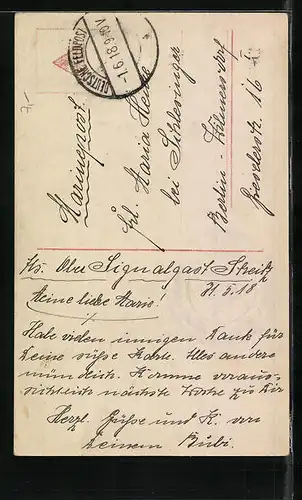 DEUTSCHE FELDPOST
-1.6.18.9-10V
7,-
Marinepost
Frl. Maria
bei Schlesinger
Berlin-Wilmersdorf
16 I
Abs. Ober Signalgast Streitz
31.5.18
Meine liebe Marie!
Habe vielen innigen Dank für
Deine süße Karte. Alles andere
mündlich. Komme voraus-
sichtlich nächste Woche zu Dir
Herzl. Grüße und K. von
Deinem Bubi.